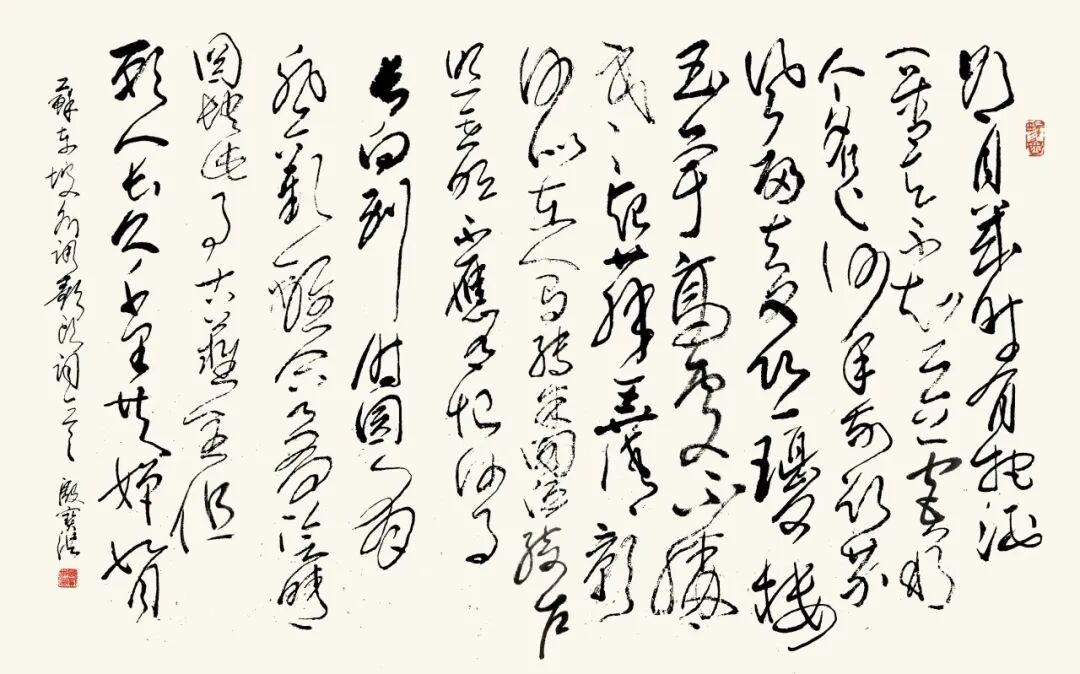 明月幾时有把酒
问青天不知天上宫阙
今夕是何年我欲乘
風歸去又恐瓊樓
玉宇高處不勝
寒起舞弄清影
何似在人间转朱阁低绮户
照无眠不應有恨何事
長向别时圆人有
悲歡離合月有陰晴
圆缺此事古難全但
願人長久千里共嬋娟
蘇东坡水调歌头词一首 殷寶